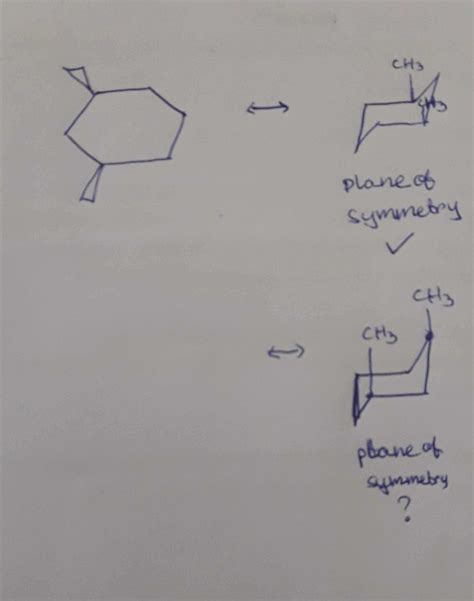 CH3
CH3
plane of
symmetry
CH3
CH3
plane of
symmetry
?